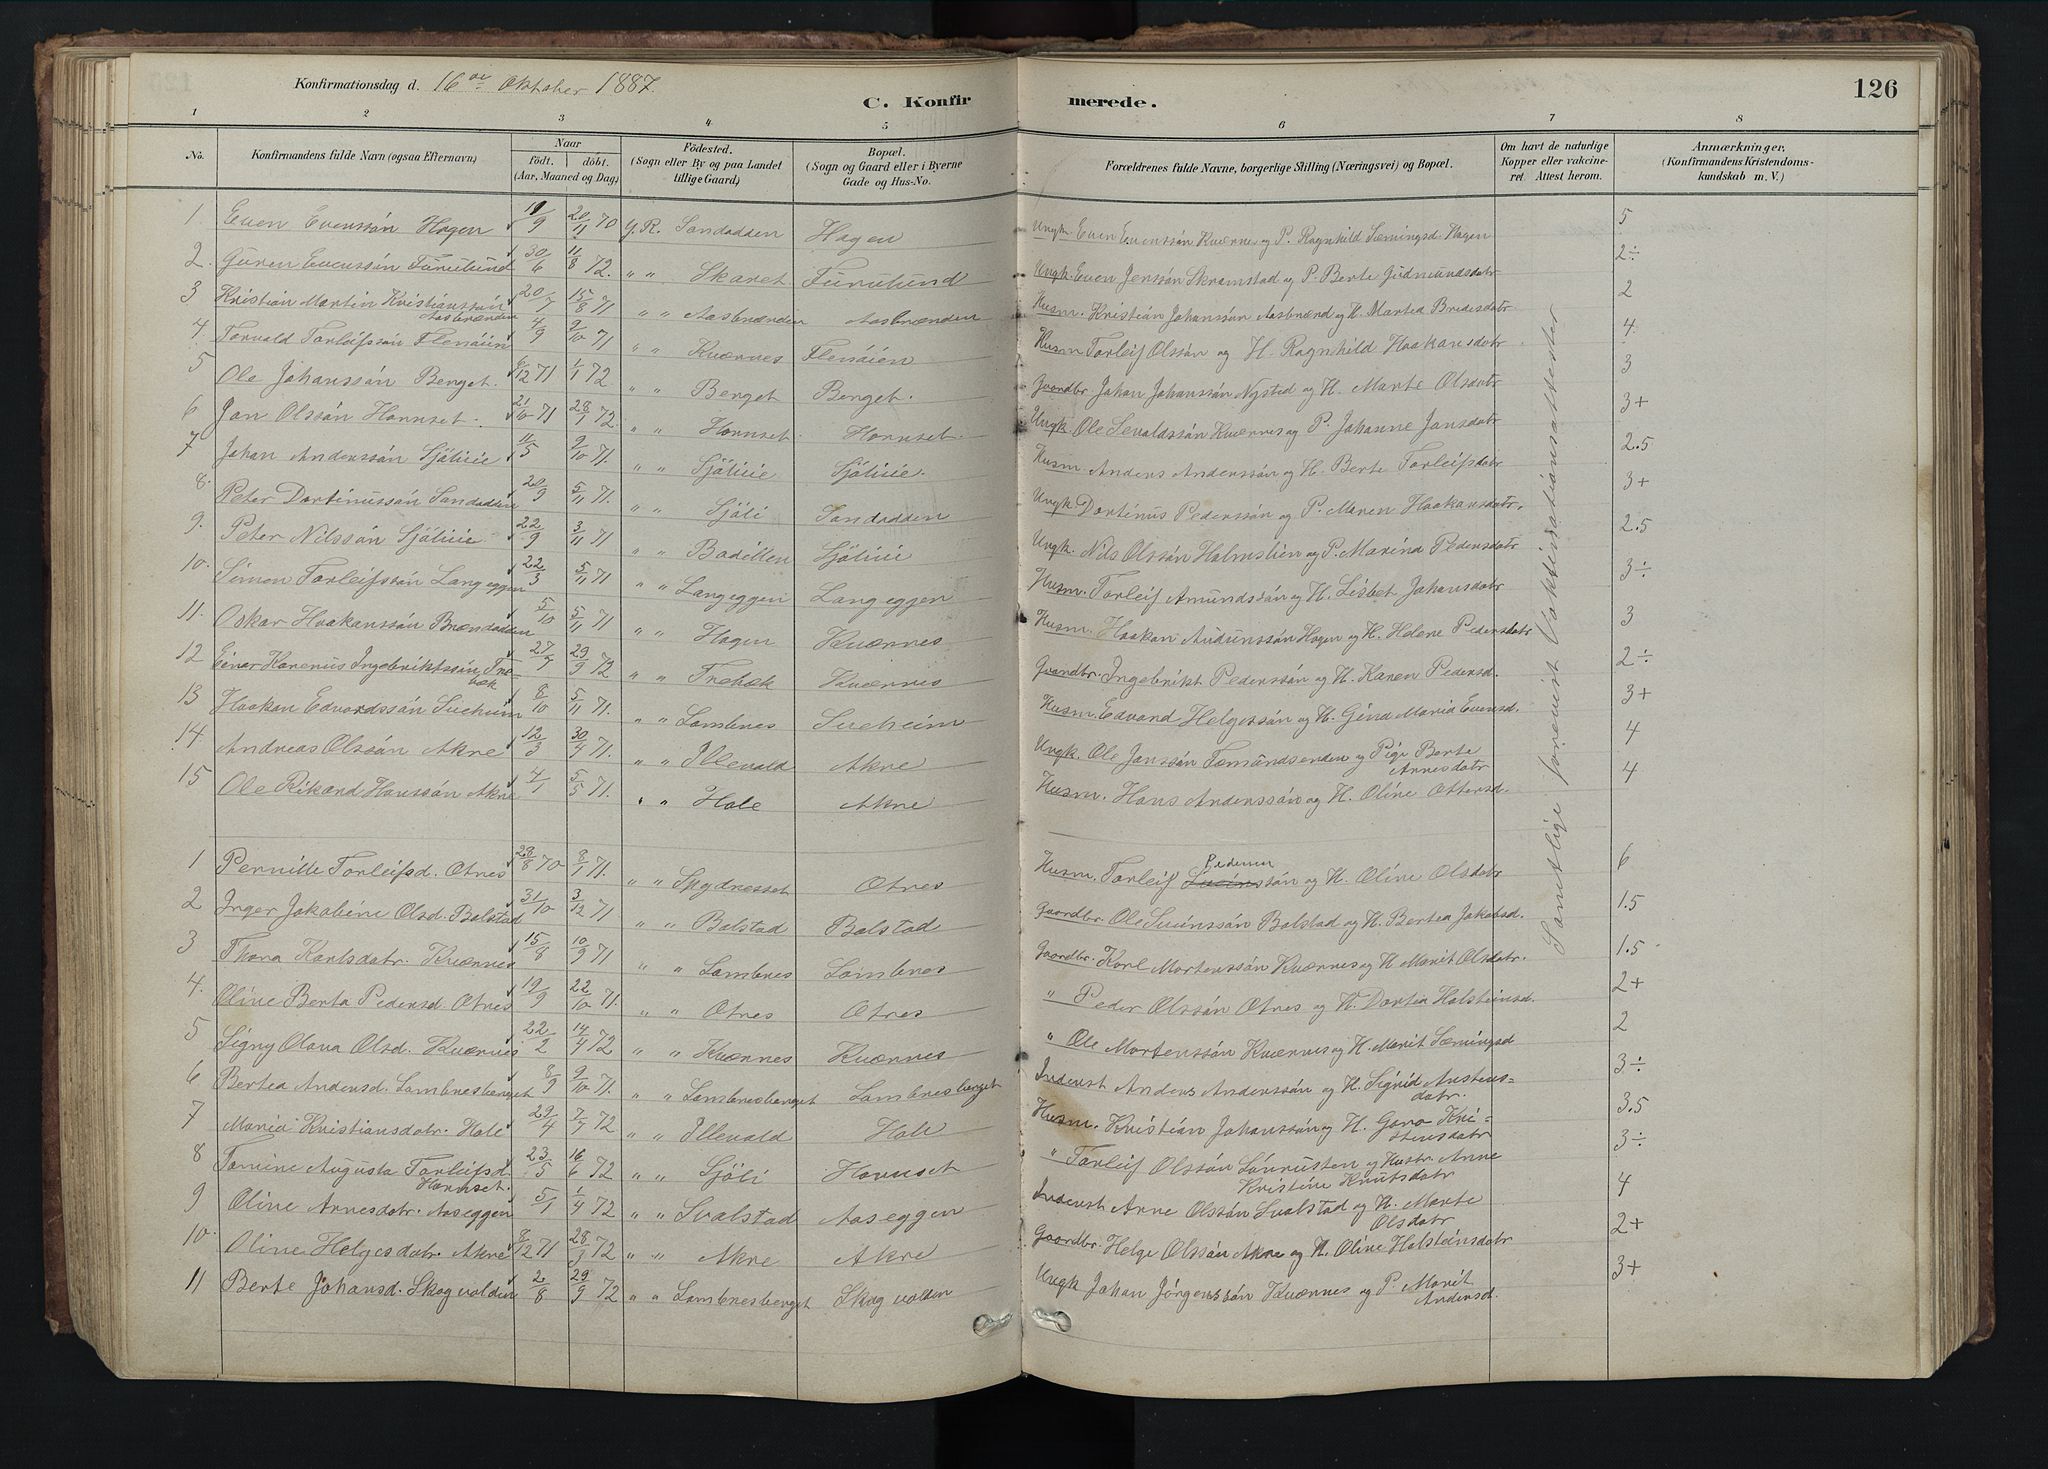 Konfirmationsdag d. 16de Oktober 1887.
C. Konfirmerede.
126
1 2 3 4 5 6 7 8
No. Konfirmandens fulde Navn (ogsaa Efternavn) Naar født. døbt. (Aar, Maaned og Dag) Fødested. (Sogn eller By og paa Landet tillige Gaard) Bopæl. (Sogn og Gaard eller i Byerne Gade og Hus-No. Forældrenes fulde Navne, borgerlige Stilling (Næringsvei) og Bopæl. Om havt de naturlige Kopper eller vakcineret Attest herom. Anmærkninger. (Konfirmandens Kristendomskundskab m. V.)
1 Even Evenssøn Hagen 19/9 20/11 70 Y. R. Sandodden Hagen Ungk. Even Evenssøn Kværnes og P. Ragnhild Sæmingsd. Hagen 5
2. Guren Evenssøn Furulund 30/6 11/8 72. " " Skaret Furulund Ungk. Even Jenssøn Skramstad og P. Berte Gudmundsdatr 2÷
3 Kristian Martin Kristianssøn Aasbrænden 20/7 15/8 71 " " Aasbrænden Aasbrænden Husm. Kristian Johanssøn Aasbrænd og H. Martea Bredesdatr 2
4. Torvald Torleifssøn Flenøien 4/9 9/10 71 " " Kværnes Flenøien Husm Torleif Olssøn og H. Ragnhild Haakansdatr 4
5 Ole Johanssøn Berget. 6/12 71 1/1 72 " " Berget Berget. Gaardbr. Johan Johanssøn Nysted og H. Marte Olsdatr 3
6 Jon Olssøn Hornset. 21/10 71 28/1 72. " " Hornset. Hornset. Ungk. Ole Sevaldssøn Kværnes og P. Johanne Jonsdatr 3+
7 Johan Anderssøn Sjølivie 11/5 9/10 71. " " Sjølivie Sjølivie. Husm Anders Anderssøn og H. Berte Torleifsdatr 2.5
8. Peter Dortinussøn Sandodden 20/9 5/11 71. " " Sjøli Sandodden Ungk. Dortinus Pederssøn og P. Maren Haakansdatr. 3+
9. Peter Nilssøn Sjølivie. 22/9 3/11 71 " " Badillen Sjølivie Ungk. Nils Olssøn Holmslien og P. Marina Pedersdatr 2.5
10. Simen Torleifssøn Langeggen 22/3 5/11 71 " " Langeggen Langeggen Husm. Torleif Amundssøn og H. Lisbet Johansdatr 3÷
11. Oskar Haakanssøn Brændodden 5/10 5/11 71 " " Hagen Kværnes Husm. Haakan Audunssøn Hagen og H. Helene Pedersdatr 3
12 Einar Karenus Ingebriktssøn Trebæk 27/7 29/9 72 " " Trebæk Kværnes Gaardbr. Ingebrikt Pederssøn og H. Karen Pedersd. 2÷
13 Haakan Edvardssøn Sveheim 8/10 5/11 71. " " Lombnes Sveheim Husm Edvard Helgessøn og H. Gina Maria Evensd. 3+
14 Andreas Olssøn Akre 12/3 30/4 71. " " Illevold Akre Ungk. Ole Janssøn Fæmundsenden og Pige Berte Arnesdatr 4
15 Ole Rikard Hanssøn Akre 4/1 5/5 71. " " Hole Akre Husm. Hans Anderssøn og H. Oline Ottersd. 4
Samtlige forevist Vaktinationsattester
1 Pernille Torleifsd. Otnes 28/8 70 8/1 71. " " Skydnesset Otnes Husm. Torleif Pedersen Sveinssøn og H. Oline Olsdatr 6
2 Inger Jakobine Olsd. Bolstad 31/10 3/12 71 " " Bolstad Bolstad Gaardbr. Ole Sveinssøn Bolstad og H. Bertea Jakobsd. 1.5
3 Thora Karlsdatr. Kværnes 15/8 10/9 71 " " Lombnes Lombnes Gaardbr. Karl Mortenssøn Kværnes og H Marit Olsdatr. 1.5
4. Oline Berta Pedersd. Otnes 19/9 22/10 71. " " Otnes Otnes " Peder Olssøn Otnes og H. Dortea Holsteinsd. 2+
5 Signy Olava Olsd. Kværnes 22/2 14/4 72 " " Kværnes Kværnes " Ole Mortenssøn Kværnes og H. Marit Sæmingsd 2
6 Bertea Andersd. Lombnesberget 8/9 9/10 71. " " Lombnesberget Lombnesberget Inderst Anders Anderssøn og H. Sigrid Austensdatr. 3÷
7 Maria Kristiansdatr. Hole 29/4 7/7 72 " " Illevold Hole Husm. Kristian Johanssøn og H. Goro Kristensdatr 3.5
8 Tomine Augusta Torleifsd Hornset. 23/5 16/6 72 " " Sjøli Hornset " Torleif Olssøn Lønrusten og Hustr. Anne Kristine Knutsdatr 3÷
9 Oline Arnesdatr. Aaseggen 5/1 1/4 72 " " Svalstad Aaseggen Inderst Arne Olssøn Svalstad og H. Marte Olsdatr 4
10. Oline Helgesdatr. Akre 8/12 71 28/3 72 " " Akre Akre Gaardbr. Helge Olssøn Akre og H. Oline Holsteinsdatr 2+
11 Berte Johansd. Skogvolden 2/8 29/9 72 " " Lombnesberget Skogvolden Ungk Johan Jörgenssøn Kværnes og P. Marit Andersd. 3+